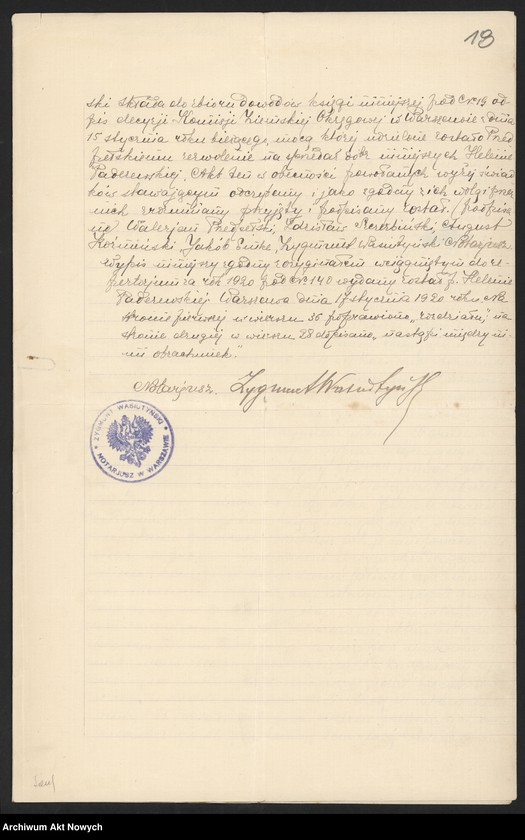 18
ski składa do zbioru dowodów księgi niniejszej pod № 19 od-
pis decyzji Komisji Ziemskiej Okręgowej w Warszawie z dnia
15 stycznia roku bieżącego, mocą której udzielone zostało
zezwolenie na sprzedaż dóbr niniejszych Helenie
Paderewskiej. Akt ten w obecności powołanych wyżej świad-
ków stawającym odczytany i jako zgodny z ich wolą przez
nich przyjęty i podpisany został. (podpisa-
no) Walerjan August
Jakób Zygmunt Wasiutyński Notarjusz.
Wypis niniejszy zgodny z oryginałem wciągniętym do re-
pertorjum za rok 1920 pod № 140 wydany został p. Helenie
Paderewskiej. Warszawa dnia 17 stycznia 1920 roku. Na
stronie pierwszej w wierszu 36 poprawiono na
stronie drugiej w wierszu 28 dopisano między in-
nmi
Notarjusz. Zygmunt Wasiutyński
ZYGMUNT WASIUTYŃSKI
NOTARJUSZ W WARSZAWIE
Archiwum Akt Nowych